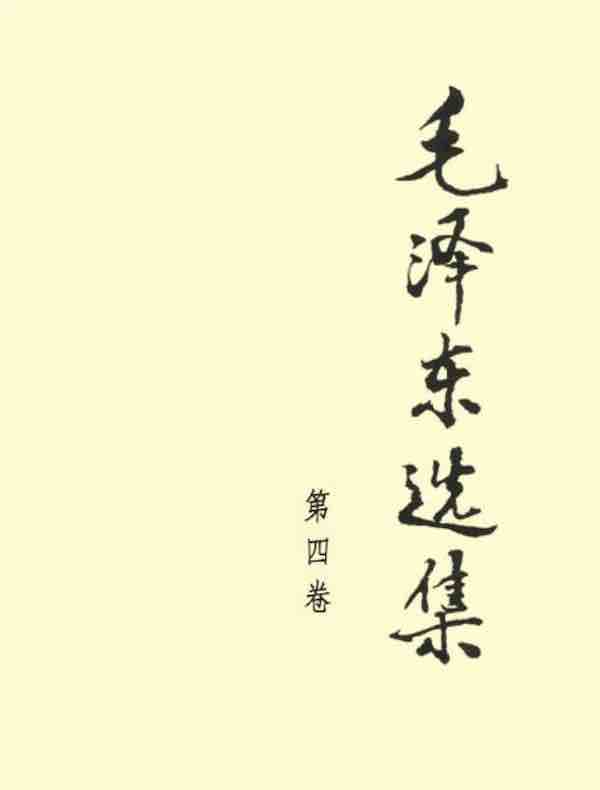 毛泽东选集
第四卷